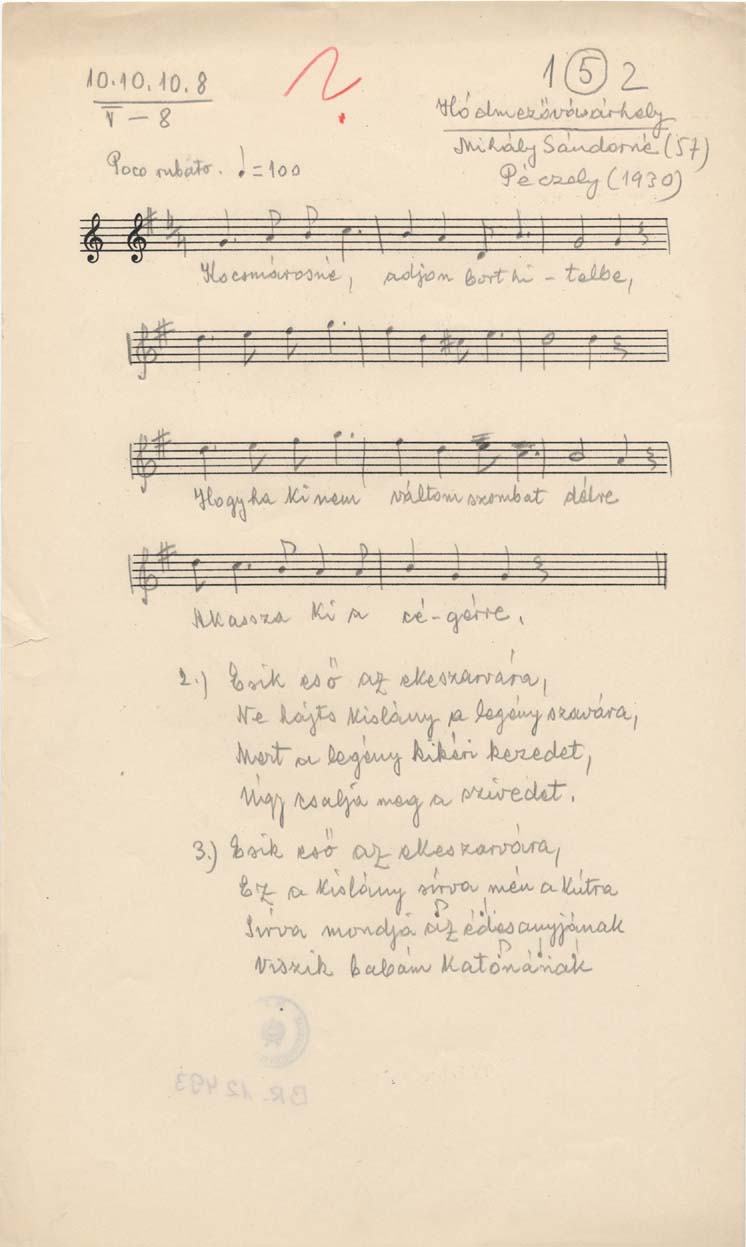 10.10.10.8
V – 8
1 (5) 2
Hódmezővásárhely
Mihály Sándorné (57)
Péczely (1930)
Poco rubato. ♩=100
Kocsmárosné, adjon bort hi - telbe,
Hogyha ki nem váltom szombat délre
Akassza ki a cé-gérre.
2.) Esik eső az ekeszarvára,
Ne hajts kislány a legény szavára,
Mert a legény kikéri kezedet,
Úgy csalja meg a szivedet.
3.) Esik eső az ekeszarvára,
Ez a kislány sírva mén a kútra
Sírva mondja az édesanyjának
Viszik babám katonának
BR. 12493